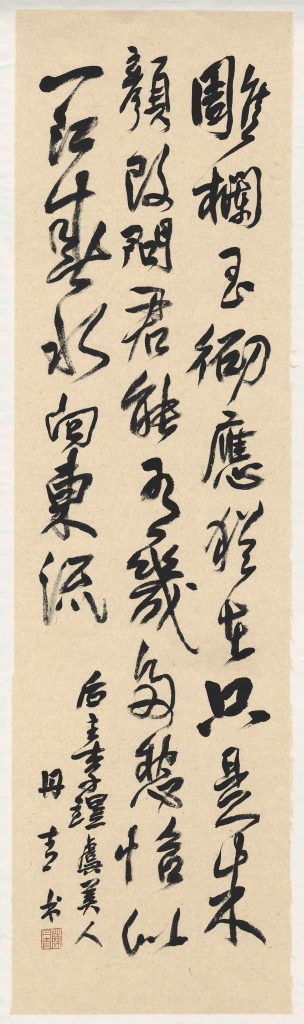 雕欄玉砌應猶在只是朱
顏改問君能有幾多愁恰似
一江春水向東流
后主李煜虞美人
丹青书